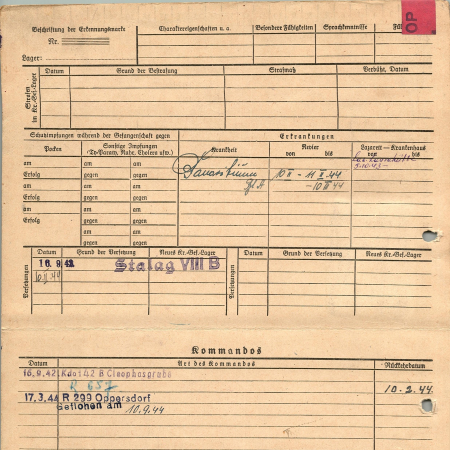 Beschriftung der Erkennungsmarke
Nr.
Lager:
Charaktereigenschaften u. a.
Besondere Fähigkeiten
Sprachkenntnisse
OP
Strafen im Kr.-Gef.-Lager
Datum
Grund der Bestrafung
Strafmaß
Verbüßt, Datum
Schutzimpfungen während der Gefangenschaft gegen
Erkrankungen
Pocken
Sonstige Impfungen
(Ty-Paraty, Ruhr, Cholera usw.)
Krankheit
Revier
von bis
Lazarett — Krankenhaus
von bis
am am am
Erfolg gegen gegen
am am am
Erfolg gegen gegen
am am am
Erfolg gegen gegen
am am
gegen gegen
10 II - 11 II 44
- 10 III 44
Versetzungen
Datum
Grund der Versetzung
Neues Kr.-Gef.-Lager
Versetzungen
Datum
Grund der Versetzung
Neues Kr.-Gef.-Lager
Stalag VIII B
Kommandos
Datum
Art des Kommandos
Rückkehrdatum
16.9.42 Kdo 142 B Cleophasgrube
R 657
10.2.44.
17.3.44 R 299 Oppersdorf
Geflohen am 10.9.44